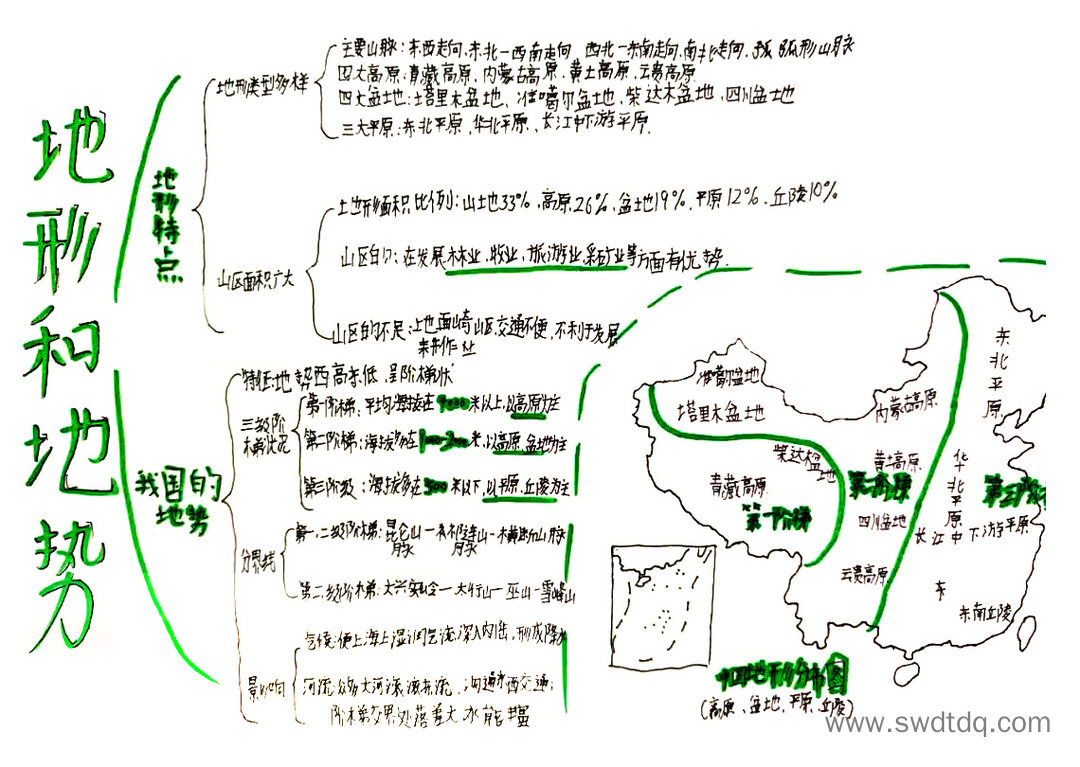 地形和地势
地形特点
地形类型多样
主要山脉：东西走向、东北一西南走向、西北一东南走向、南北走向、弧形山脉
四大高原：青藏高原、内蒙古高原、黄土高原、云贵高原
四大盆地：塔里木盆地、准噶尔盆地、柴达木盆地、四川盆地
三大平原：东北平原、华北平原、长江中下游平原
山区面积广大
地形面积比例：山地33%、高原26%、盆地19%、平原12%、丘陵10%
在发展林业、牧业、旅游业、采矿业等方面有优势
山区的不足：地面崎 山区、交通不便、不利于发展
耕作业
我国的地势
特征：地势西高东低、呈阶梯状
三级阶梯状况
第一阶梯：平均海拔在4000米以上、以高原为主
第二阶梯：海拔多在1000-2000米、以高原、盆地为主
第三阶级：海拔多在500米以下、以平原、丘陵为主
分界线
第一、二级阶梯：昆仑山脉一祁连山脉一横断山脉
第二、三级阶梯：大兴安岭一太行山一巫山一雪峰山
影响
气候：使上海上湿润气流深入内陆、形成降水
河流：众多大河滚滚东流、沟通东西交通；
阶梯交界处落差大、水能丰富
准噶尔盆地
塔里木盆地
柴达木盆地
青藏高原
第一阶梯
内蒙古高原
黄土高原
第二阶梯
四川盆地
云贵高原
东北平原
华北平原
第三阶梯
长江中下游平原
东
东南丘陵
中国地形分布图
(高原、盆地、平原、丘陵)
www.swdtdq.com